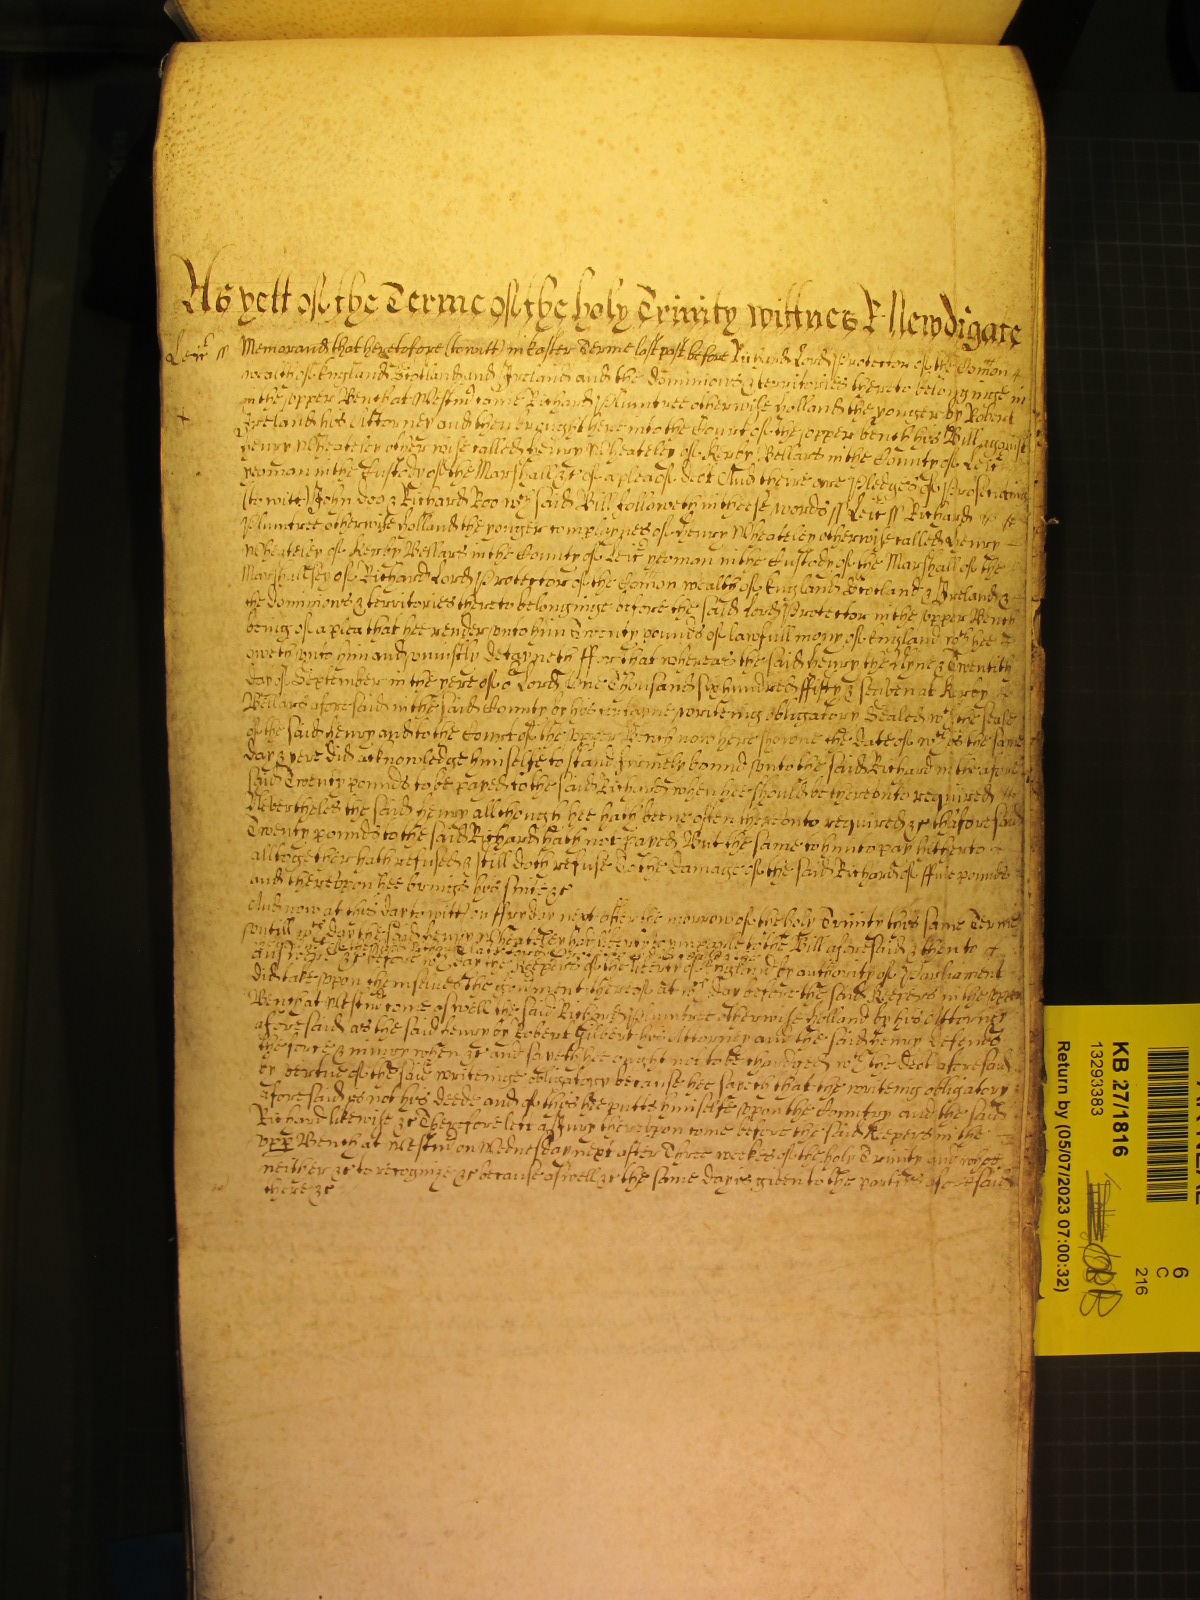 As yett of the Terme of the holy Trinity wittnes R Newdigate
Leic ss Memorand that heretofore (to witt) in Easter Terme last past before Richard Lord Protector of the Comon
wealth of England Scotland and Ireland and the dominions & territories thereto belonginge in
the upper Bench at Westmr came Richard Plumtree otherwise holland the yonger by Robert
Ireland his Attorney and then brought here into the Court of the upper bench his Bill against
henry Wheateley otherwise called henry Wheateley of Kerby Bellars in the County of Leic
yeoman in the Custody of the Marshall &c of a plea of debt And there are Pledges of Prosecuting
(to witt) John Doo & Richard Roo wch said Bill followeth in theise words ss Leic ss Richard
Plumtree otherwise holland the yonger complaynes of henry Wheateley otherwise called henry
Wheateley of Kerby Bellars in the County of Leic yeoman in the Custody of the Marshall of the
Marshallsey of Richard Lord Protector of the Comon wealth of England Scotland & Ireland &
the dominions & territories thereto belonginge before the said Lord Protector in the upper Bench
being of a plea that hee render unto him Twenty pounds of lawfull mony of England wch hee
oweth unto him and uniustly detayneth ffor that whereas the said henry the Nyne & Twentith
day of September in the yere of or Lord One Thousand Six hundred ffifty & seaven at Kerby
Bellars aforesaid in the said County by his certayne writeing obligatory Sealed wth the seale
of the said henry and to the Court of the upper Bench now here showne the date of wch is the same
day & yere did acknowledge himselfe to stand firmely bound unto the said Richard in the afore
said Twenty pounds to be payed to the said Richard when hee should be thereunto required
Nevertheles the said henry allthough hee hath beene often thereunto required &c thaforesaid
Twenty pounds to the said Richard hath not payed But the same to him to pay hitherto
alltogether hath refused & still doth refuse To the damage of the said Richard of ffive pounds
and thereupon hee brings his suite &c
And now at this day (to witt) on ffryday next after the morrow of the holy Trinity this same Terme
untill wch day the said henry Wheateley had liberty to imparle to the Bill aforesaid & then to
answere &c before wch day the Keepers of the liberty of England by authority of Parliament
did take upon themselves the government thereof at wch day before the said Keepers in the upper
Bench at Westmr come aswell the said Richard Plumtree otherwise holland by his Attorney
aforesaid as the said henry by Robert Gilbert his Attorney and the said henry defends
the force & iniury when &c and sayeth hee ought not to be chardged wth the debt aforesaid
by vertue of the said writeinge obligatory because hee sayeth that the writeing obligatory
aforesaid is not his deede and of this hee putts himselfe upon the Country and the said
Richard likewise &c Therefore lett a Jury thereupon come before the said Keepers in the
upp Bench at Westmr on Wednesday next after Three weekes of the holy Trinity and whoe
neither &c to recognize &c because aswell &c the same day is given to the parties aforesaid
there &c
KB 27/1816
13293383
Return by (05/07/2023 07:00:32)
6
C
216